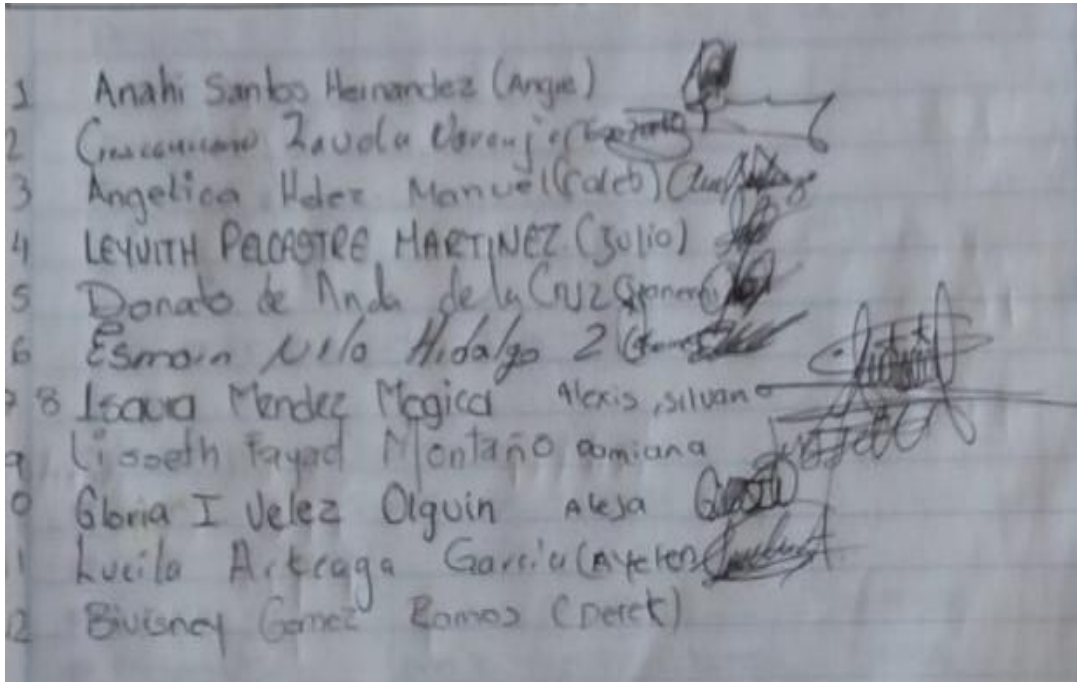 1 Anahi Santos Hernandez (Angie)
2 Zavala
3 Angelica Hdez Manuel (Caleb)
4 LEYUITH PELCASTRE MARTINEZ (Julio)
5 Donato de Anda de la Cruz
6 Esmain Hidalgo 2
8 Isaura Mendez Mogica Alexis, silvano
9 Lisseth Fayad Montaño Damiana
0 Gloria I Velez Olguin Aleja
1 Lucila Arteaga Garcia (Ayelen)
2 Bivisney Gomez Ramos (Derek)